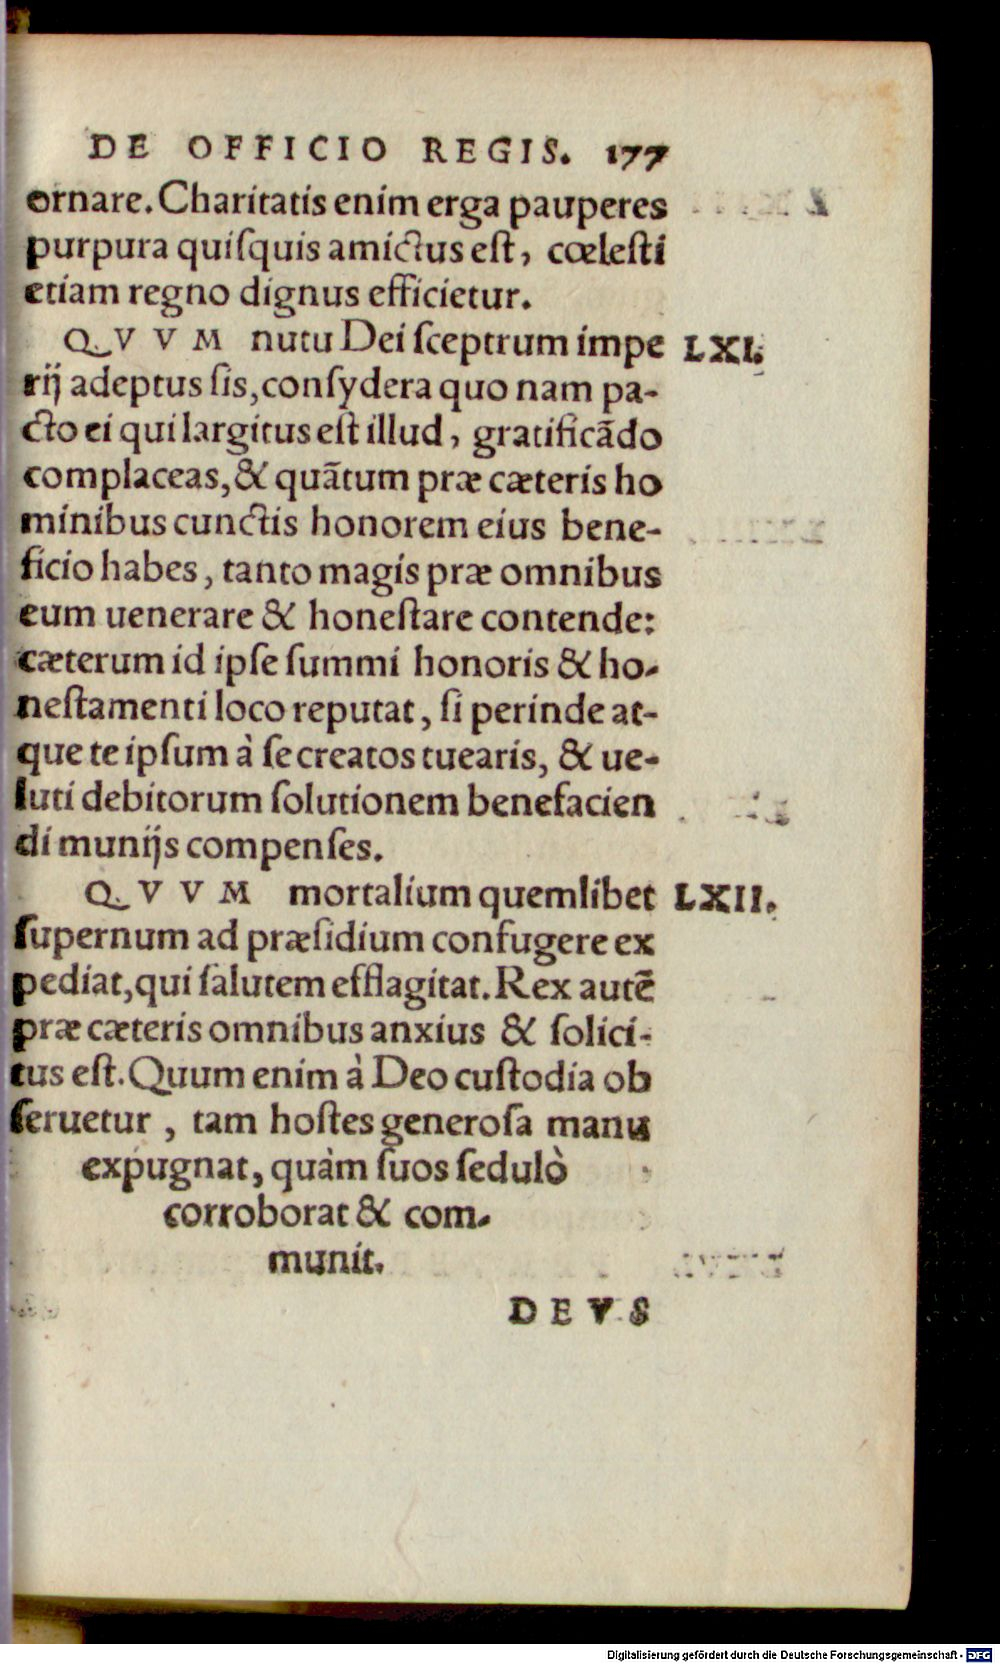 DE OFFICIO REGIS. 177
ornare. Charitatis enim erga pauperes
purpura quiſquis amictus eſt, cœleſti
etiam regno dignus efficietur.
QVVM nutu Dei ſceptrum impe LXI.
rij adeptus ſis, conſydera quo nam pa-
cto ei qui largitus eſt illud, gratificādo
complaceas, & quātum præ cæteris ho
minibus cunctis honorem eius bene-
ficio habes, tanto magis præ omnibus
eum uenerare & honeſtare contende:
cæterum id ipſe ſummi honoris & ho-
neſtamenti loco reputat, ſi perinde at-
que te ipſum à ſe creatos tuearis, & ue-
luti debitorum ſolutionem benefacien
di munijs compenſes.
QVVM mortalium quemlibet LXII.
ſupernum ad præſidium confugere ex
pediat, qui ſalutem efflagitat. Rex autē
præ cæteris omnibus anxius & ſolici-
tus eſt. Quum enim à Deo cuſtodia ob
ſeruetur, tam hoſtes generoſa manu
expugnat, quàm ſuos ſedulò
corroborat & com-
munit.
DEVS
Digitalisierung gefördert durch die Deutsche Forschungsgemeinschaft - DFG